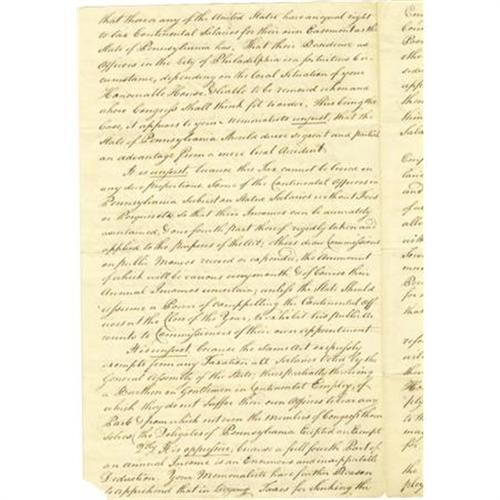 that those or any of the United States have an equal right
to tax Continental Salaries for their own Easement as the
State of Pennsylvania has. That their Residence as
Officers in the City of Philadelphia is a fortuitous Cir-
cumstance, depending on the Local Situation of your
Honourable House, & liable to be removed when and
where Congress shall think fit to order. This being the
Case, it appears to your Memorialists unjust, that the
State of Pennsylvania should derive so great and partial
an advantage from a mere local Accident.
It is unjust, because this Tax cannot be levied in
any due proportion. Some of the Continental Officers in
Pennsylvania subsist on Stated Salaries without Fees
or Perquisites, so that their Incomes can be accurately
ascertained, & one fourth part thereof rigidly taken and
applied to the purposes of the Act; others draw Commissions
on public Monies received or expended, the Amount
of which will be various every month & of Course their
Annual Incomes uncertain; unless the State should
assume a Power of compelling the Continental Off
icers at the Close of the Year, to exhibit their public Ac
counts to Commissioners of their own appointment
It is unjust, because the same Act expressly
exempts from any Taxation all Salaries given by the
General Assembly of the State, thus partially throwing
a Burthen on Gentlemen in Continental Employ, of
which they do not suffer their own Officers to bear any
Part & from which not even the Members of Congress them
selves, the Delegates of Pennsylvania excepted are exempt
2dly It is oppressive, because a full fourth Part of
an annual Income is an Enormous and insupportable
Deduction. Your Memorialists have further Reason
to apprehend that in levying Taxes for sinking the